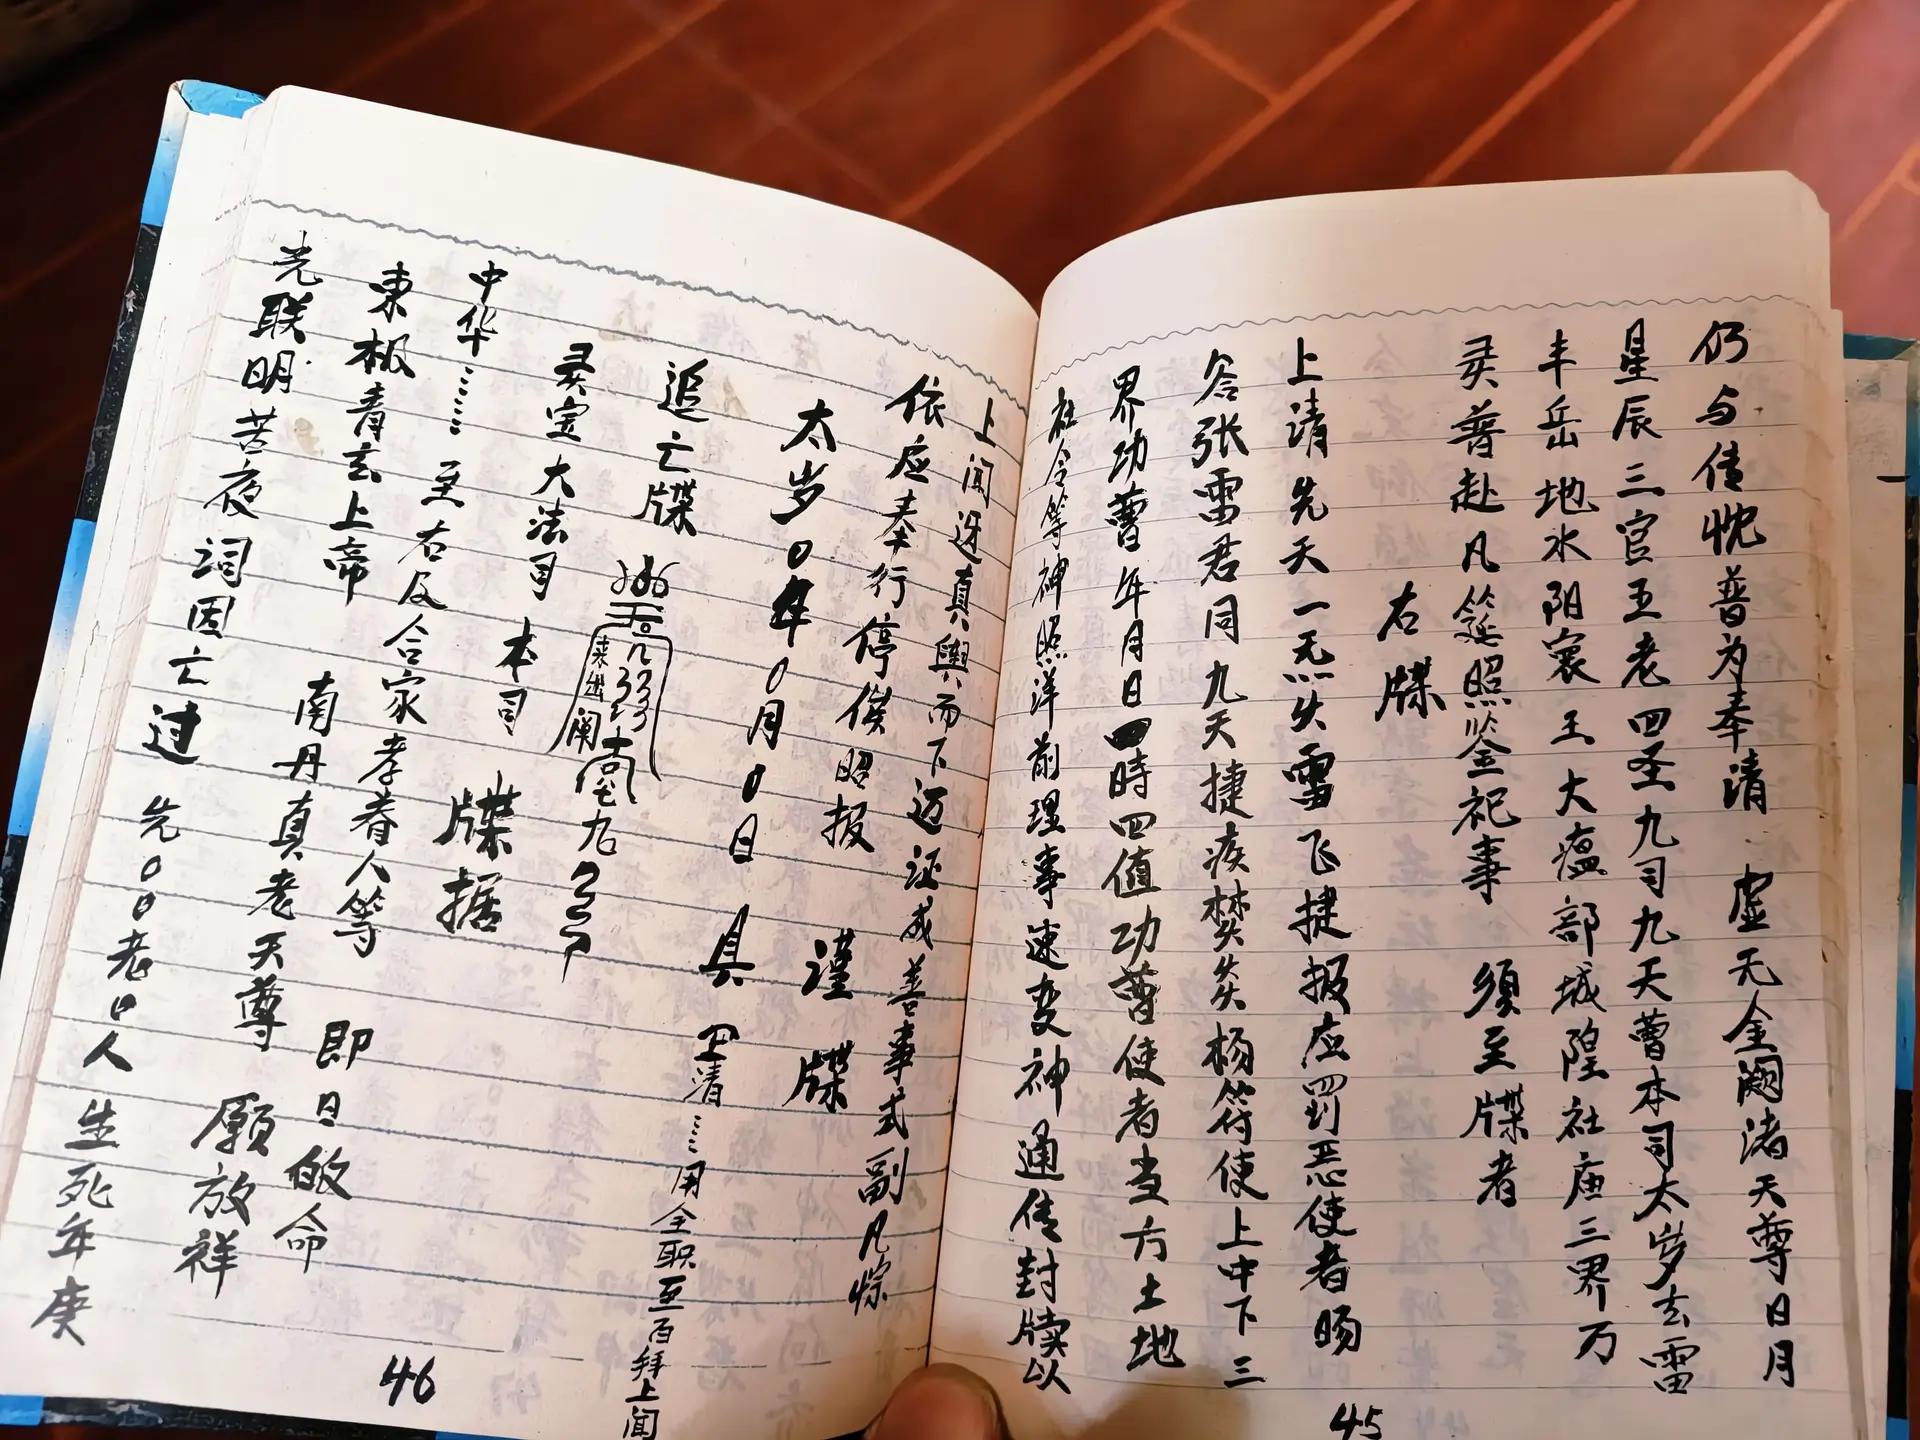 仍与传忱普为奉清 虚无金阙渚天尊日月
星辰三官五老四圣九司九天曹本司太岁玄雷
丰岳地水阳寰王大瘟部城隍社庙三界万
灵普赴凡筵照鉴祀事 须至牒者
右牒
上清先天一炁火雷飞捷报应罚恶使者
张雷君同九天捷疾焚炎杨符使上中下三
界功曹年月日时四值功曹使者当方土地
社令等神照洋前理事速变神通传封牍以
上闻迓真舆而下迈证成善事式副凡悰
依应奉行停候昭报 谨牒
太岁0年0月0日 具
上清……用全职至百拜上闻
追亡牒
来出阑
灵宝大法司 本司 牒据
中华……至右及合家孝眷人等 即日皈命
东极青玄上帝 南丹真老天尊 愿放祥
光联明苦夜词因亡过 先00老0人生死年庚
45
46